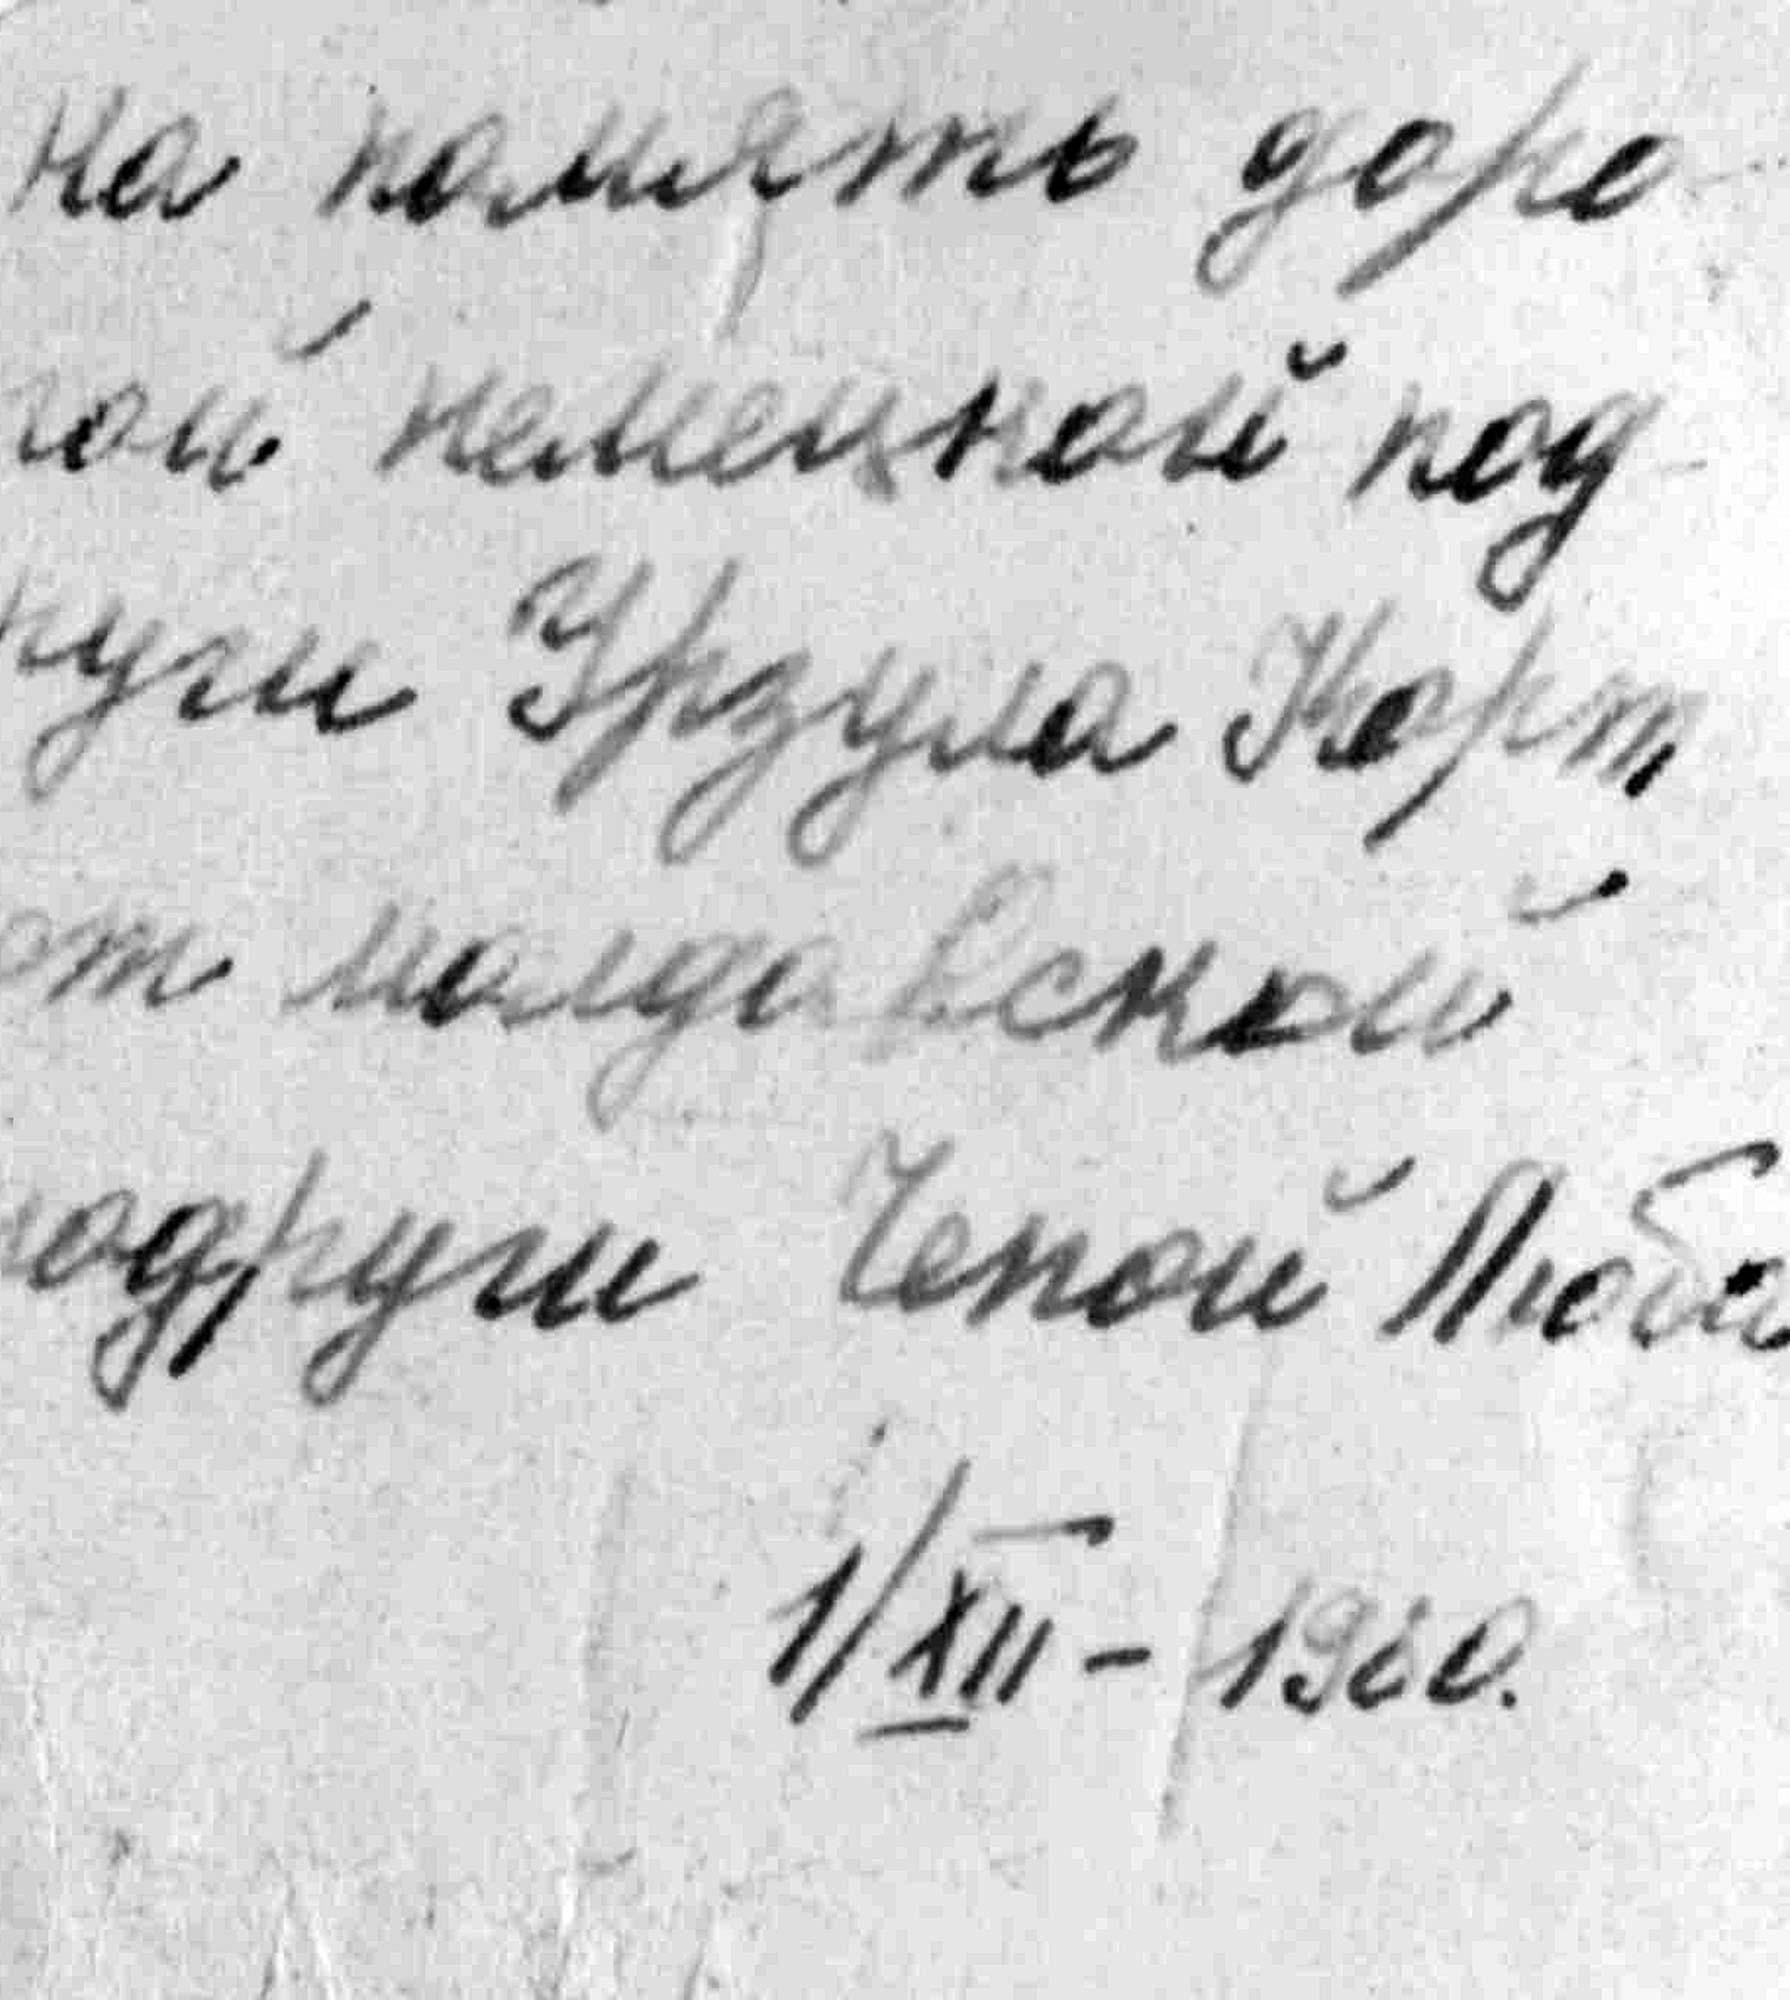 на память доро-
гой немецкой под-
руги Урзула Корт,
от молдавской
подруги Чепой Люба
1/XII - 1960.